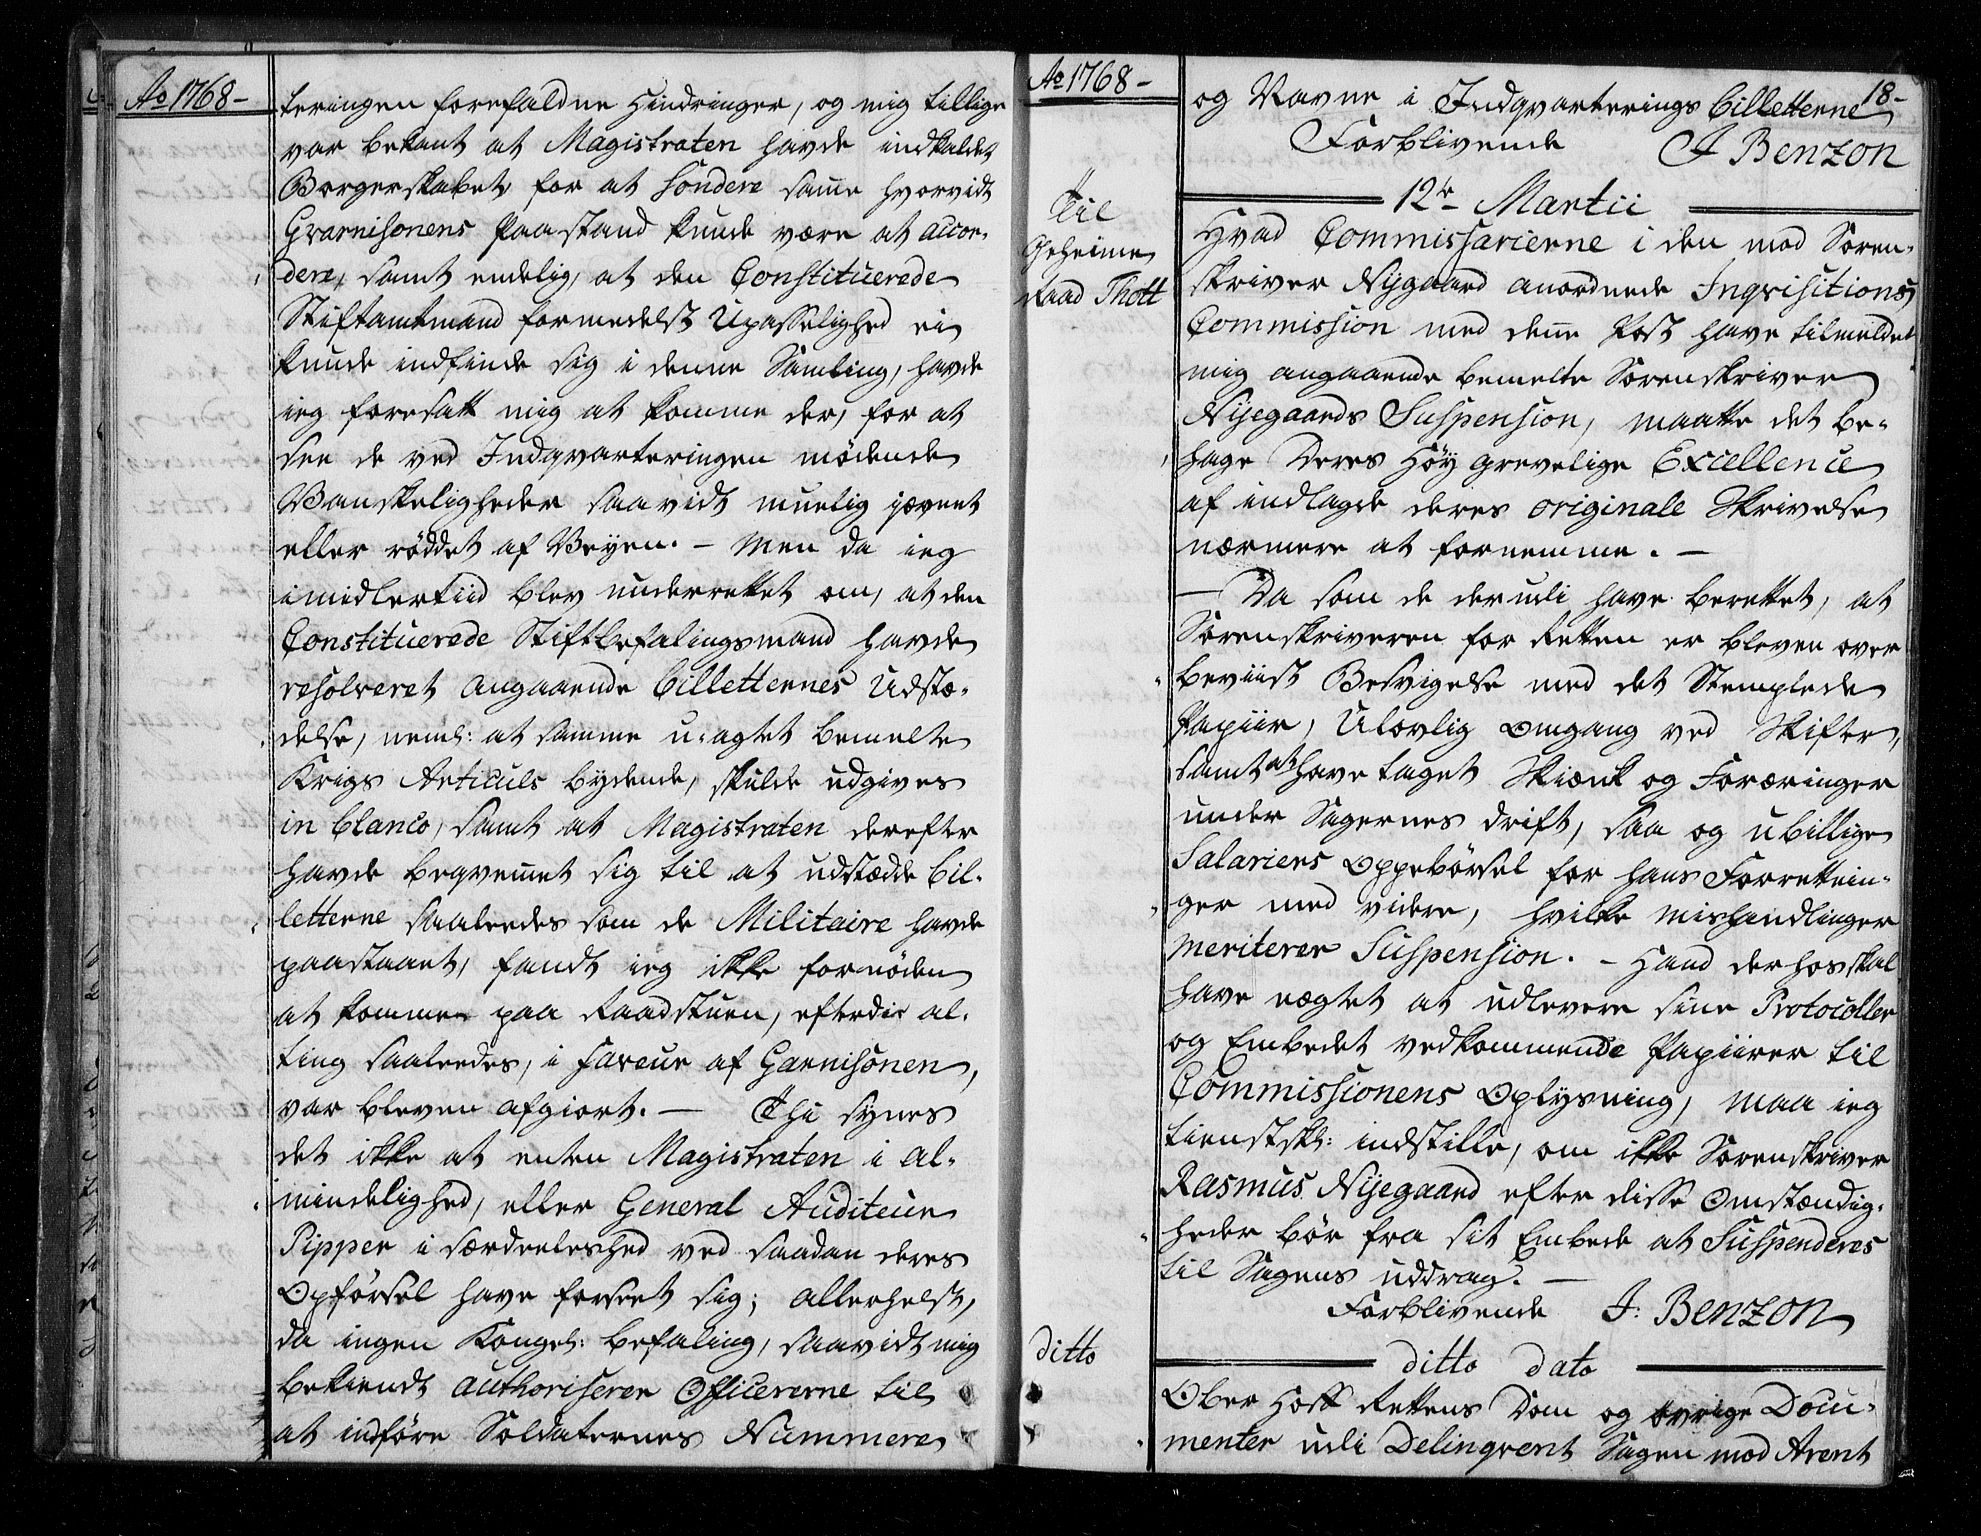 Ao 1768-
teringen forefaldne Hindringer, og mig tillige
var bekant at Magistraten havde indkaldet
Borgerskabet for at sondere samme hvorvidt
Gvarnisonens Paastand kunde være at accor-
dere, samt endelig, at den Constituerede
Stiftamtmand formedelst Upasselighed ei
kunde indfinde sig i denne Samling, havde
ieg foresatt mig at komme der, for at
see de ved Indqvarteringen mødende
Vanskeligheder saavidt muelig jævnet
eller røddet af Veyen. - Men da ieg
imidlertiid blev underrettet om, at den
Constituerede Stiftbefalingsmand havde
resolveret angaaende billetternes Udstæ-
delse, neml: at samme u-agtet bemelte
Krigs Articuls bydende, skulde udgives
in blanco, samt at Magistraten derefter
havde beqvemmet sig til at udstædde bil-
letterne saaledes som de Militaire havde
paastaaet, fandt ieg ikke fornøden
at komme paa Raadstuen, efterdi al-
ting saaledes, i faveur af Garnisonen,
var bleven afgiort. - Thi synes
det ikke at enten Magistraten i al-
mindelighed, eller General Auditeur
Pipper i særdeeleshed ved saadan deres
Opførsel have forseet sig; allerhelst,
da ingen Kongel: befaling, saavidt mig
bekiendt authoriserer Officererne til
at indføre Soldaternes Nummere
Ao 1768-
18-
og Navne i Indqvarterings billetterne
Forblivende J Benzon
12te Martii
Til
Geheime
Raad Thott
Hvad Commissarierne i den mod Soren-
skriver Nygaard anordnede Inqvisitions
Commission med denne Post have tilmeldet
mig angaaende bemelte Sorenskriver
Nyegaards Suspension, maatte det be-
hage Deres Høy Grevelige Excellence
af indlagde deres originale Skrivelse
nærmere at fornemme. -
- Da som de derudi have berettet, at
Sorenskriveren for Retten er bleven over
beviist Besvigelse med det Stemplede
Papiir, Ulovlig Omgang ved Skifter,
samt at have taget Skiænk og Foræringer
under Sagernes drift, saa og ubillige
Salariers Oppebørsel for hans Forrettnin-
ger med videre, hvilke mishandlinger
meriterer Suspension. - Hand derhos skal
have nægtet at udlevere sine Protocoller
og Embedet vedkommende Papiirer til
Commissionens Oplysning, maa ieg
tienstskl: indstille, om ikke Sorenskriver
Rasmus Nyegaard efter disse Omstændig-
heder bør fra sit Embede at Suspenderes
til Sagens uddrag. -
Forblivende J. Benzon
ditto
ditto dato
Ober Hoff Rettens Dom og øvrige Docu-
menter udi Delinqvent Sagen mod Arent